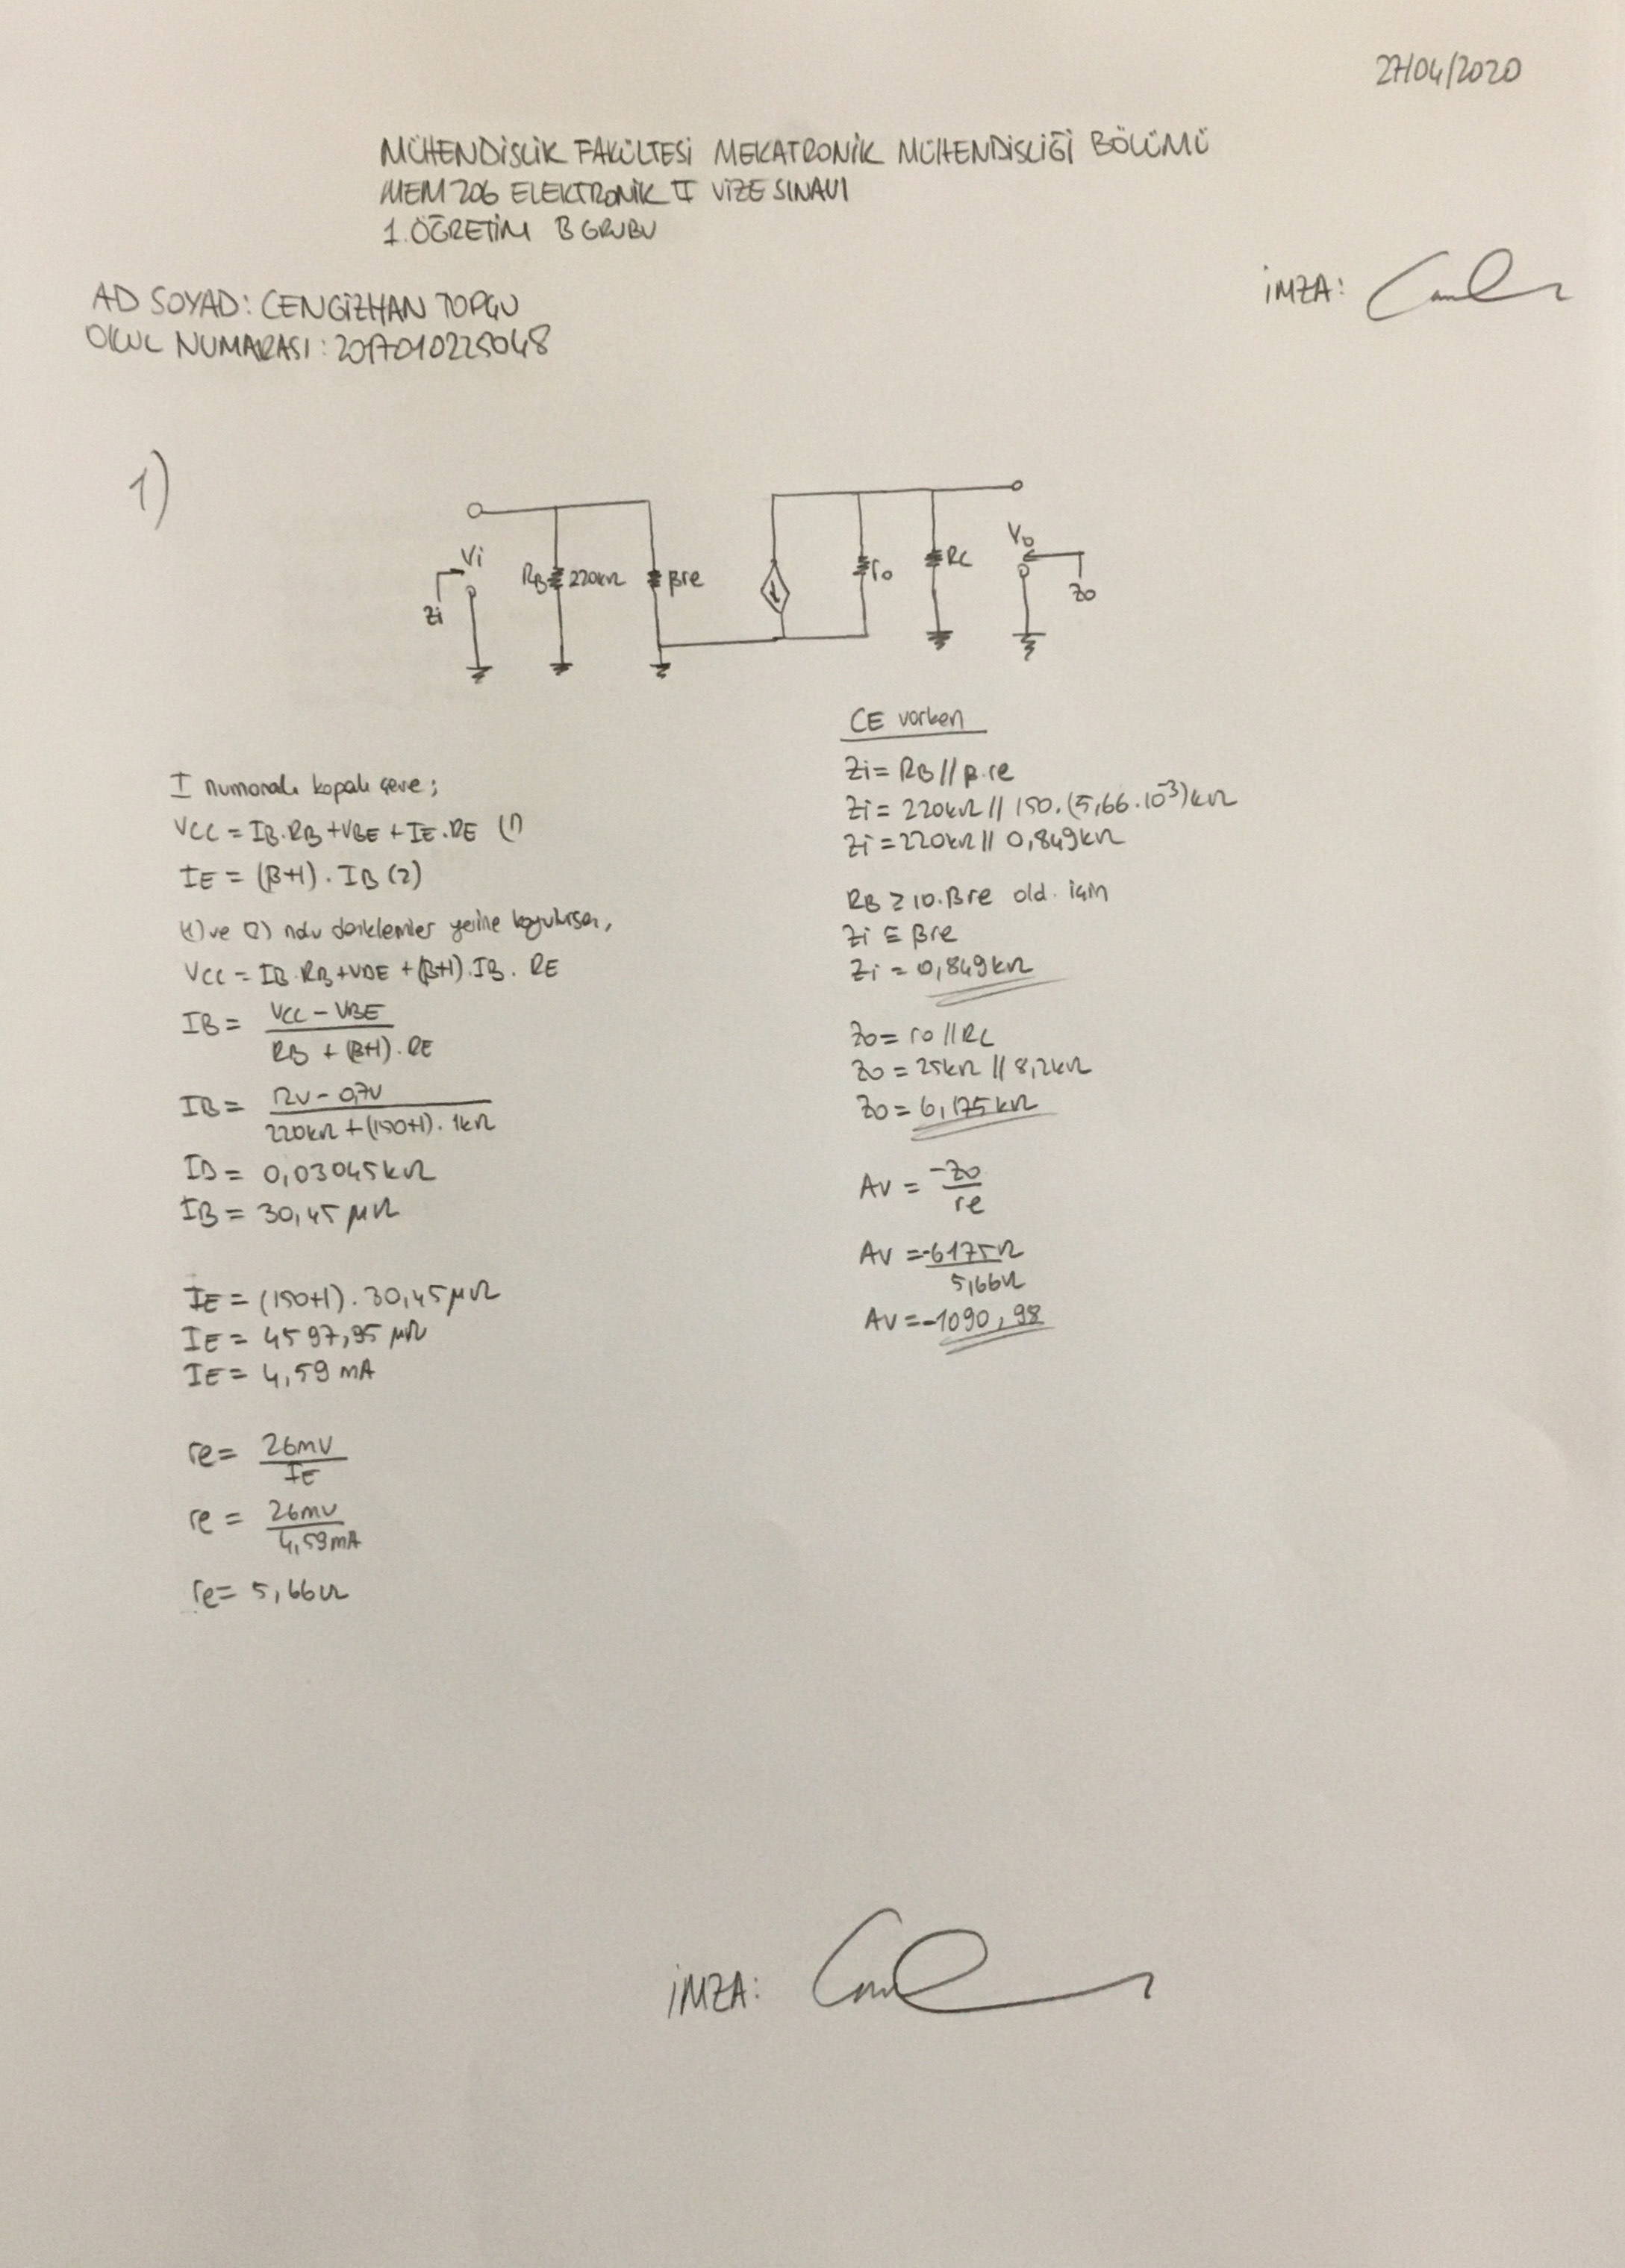 27/04/2020
MÜHENDİSLİK FAKÜLTESİ MEKATRONİK MÜHENDİSLİĞİ BÖLÜMÜ
MEM 206 ELEKTRONİK II VİZE SINAVI
1.ÖĞRETİM B GRUBU
İMZA:
AD SOYAD: CENGİZHAN TOPÇU
OKUL NUMARASI: 2017010225048
1)
Vi
Zi
RB
220kΩ
βre
ro
RC
Vo
Zo
I numaralı kapalı çevre;
VCC = IB.RB+VBE+IE.RE (1)
IE = (β+1).IB (2)
(1) ve (2) nolu denklemler yerine koyulursa,
VCC = IB.RB+VBE+(β+1).IB.RE
IB = VCC - VBE / RB + (β+1).RE
IB = 12V - 0,7V / 220kΩ + (150+1).1kΩ
IB = 0,03045kΩ
IB = 30,45 μΩ
IE = (150+1).30,45μΩ
IE = 4597,95 μΩ
IE = 4,59 mA
re = 26mV / IE
re = 26mV / 4,59mA
re = 5,66Ω
CE varken
Zi = RB//β.re
Zi = 220kΩ // 150.(5,66.10^-3)kΩ
Zi = 220kΩ // 0,849kΩ
RB ≥ 10.βre old. için
Zi ≅ βre
Zi = 0,849kΩ
Zo = ro//RC
Zo = 25kΩ // 8,2kΩ
Zo = 6,175kΩ
Av = -Zo / re
Av = -6175Ω / 5,66Ω
Av = -1090,98
İMZA: